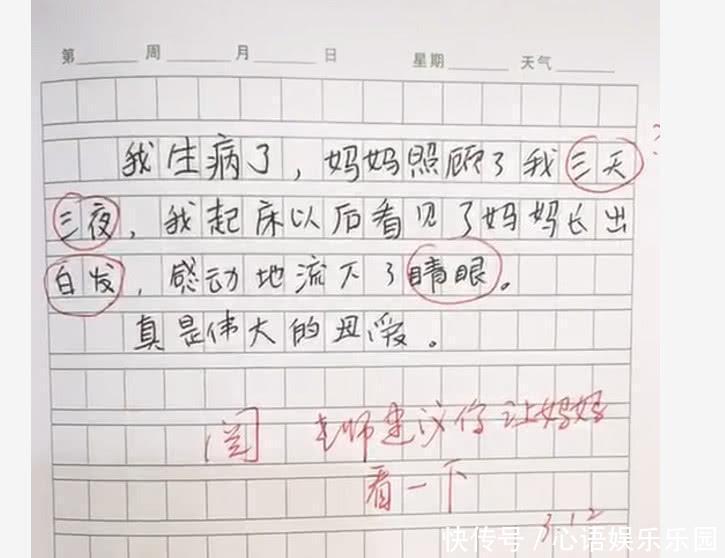 第 周 月 日 星期 天气
我生病了，妈妈照顾了我三天
三夜，我起床以后看见了妈妈长出
白发，感动地流下了睛眼。
真是伟大的母爱。
阅 老师建议你让妈妈
看一下
3.12
快传号/心语娱乐乐园